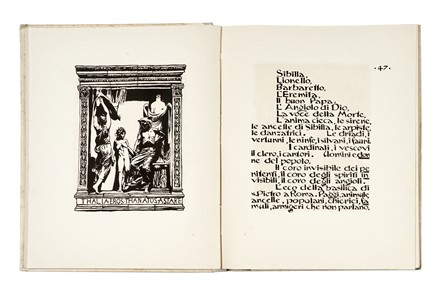 THALIA EROS THANATOS ASTARE
· 47 ·
Sibilla,
Lionello,
Barbaretto,
L'Eremita,
Il buon Papa,
L'Angiolo di Dio,
La voce della Morte,
L'anima cieca, le sirene,
le ancelle di Sibilla, le arpiste,
le danzatrici. Le driadi, i
vertunni, le ninfe, i silvani, i fauni
I cardinali, i vescovi
il clero, i cantori. Uomini e don
ne del popolo.
Il coro invisibile dei pe
nitenti, il coro degli spiriti in
visibili, il coro degli angioli.
L'eco della basilica di
S. Pietro a Roma. Paggi, armigeri
ancelle, popolari, chierici, fa
muli, armigeri che non parlano.